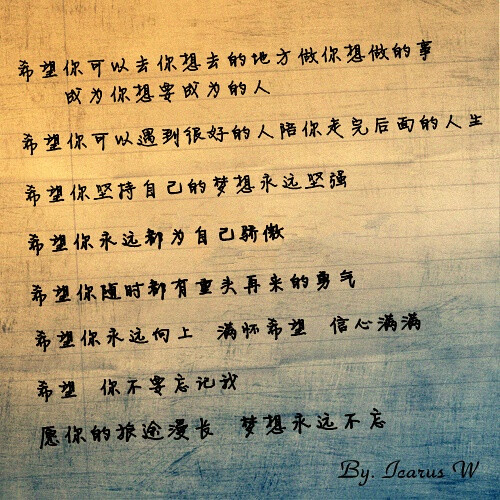 希望你可以去你想去的地方做你想做的事
成为你想要成为的人
希望你可以遇到很好的人陪你走完后面的人生
希望你坚持自己的梦想永远坚强
希望你永远都为自己骄傲
希望你随时都有重头再来的勇气
希望你永远向上 满怀希望 信心满满
希望 你不要忘记我
愿你的旅途漫长 梦想永远不忘
By. Icarus W